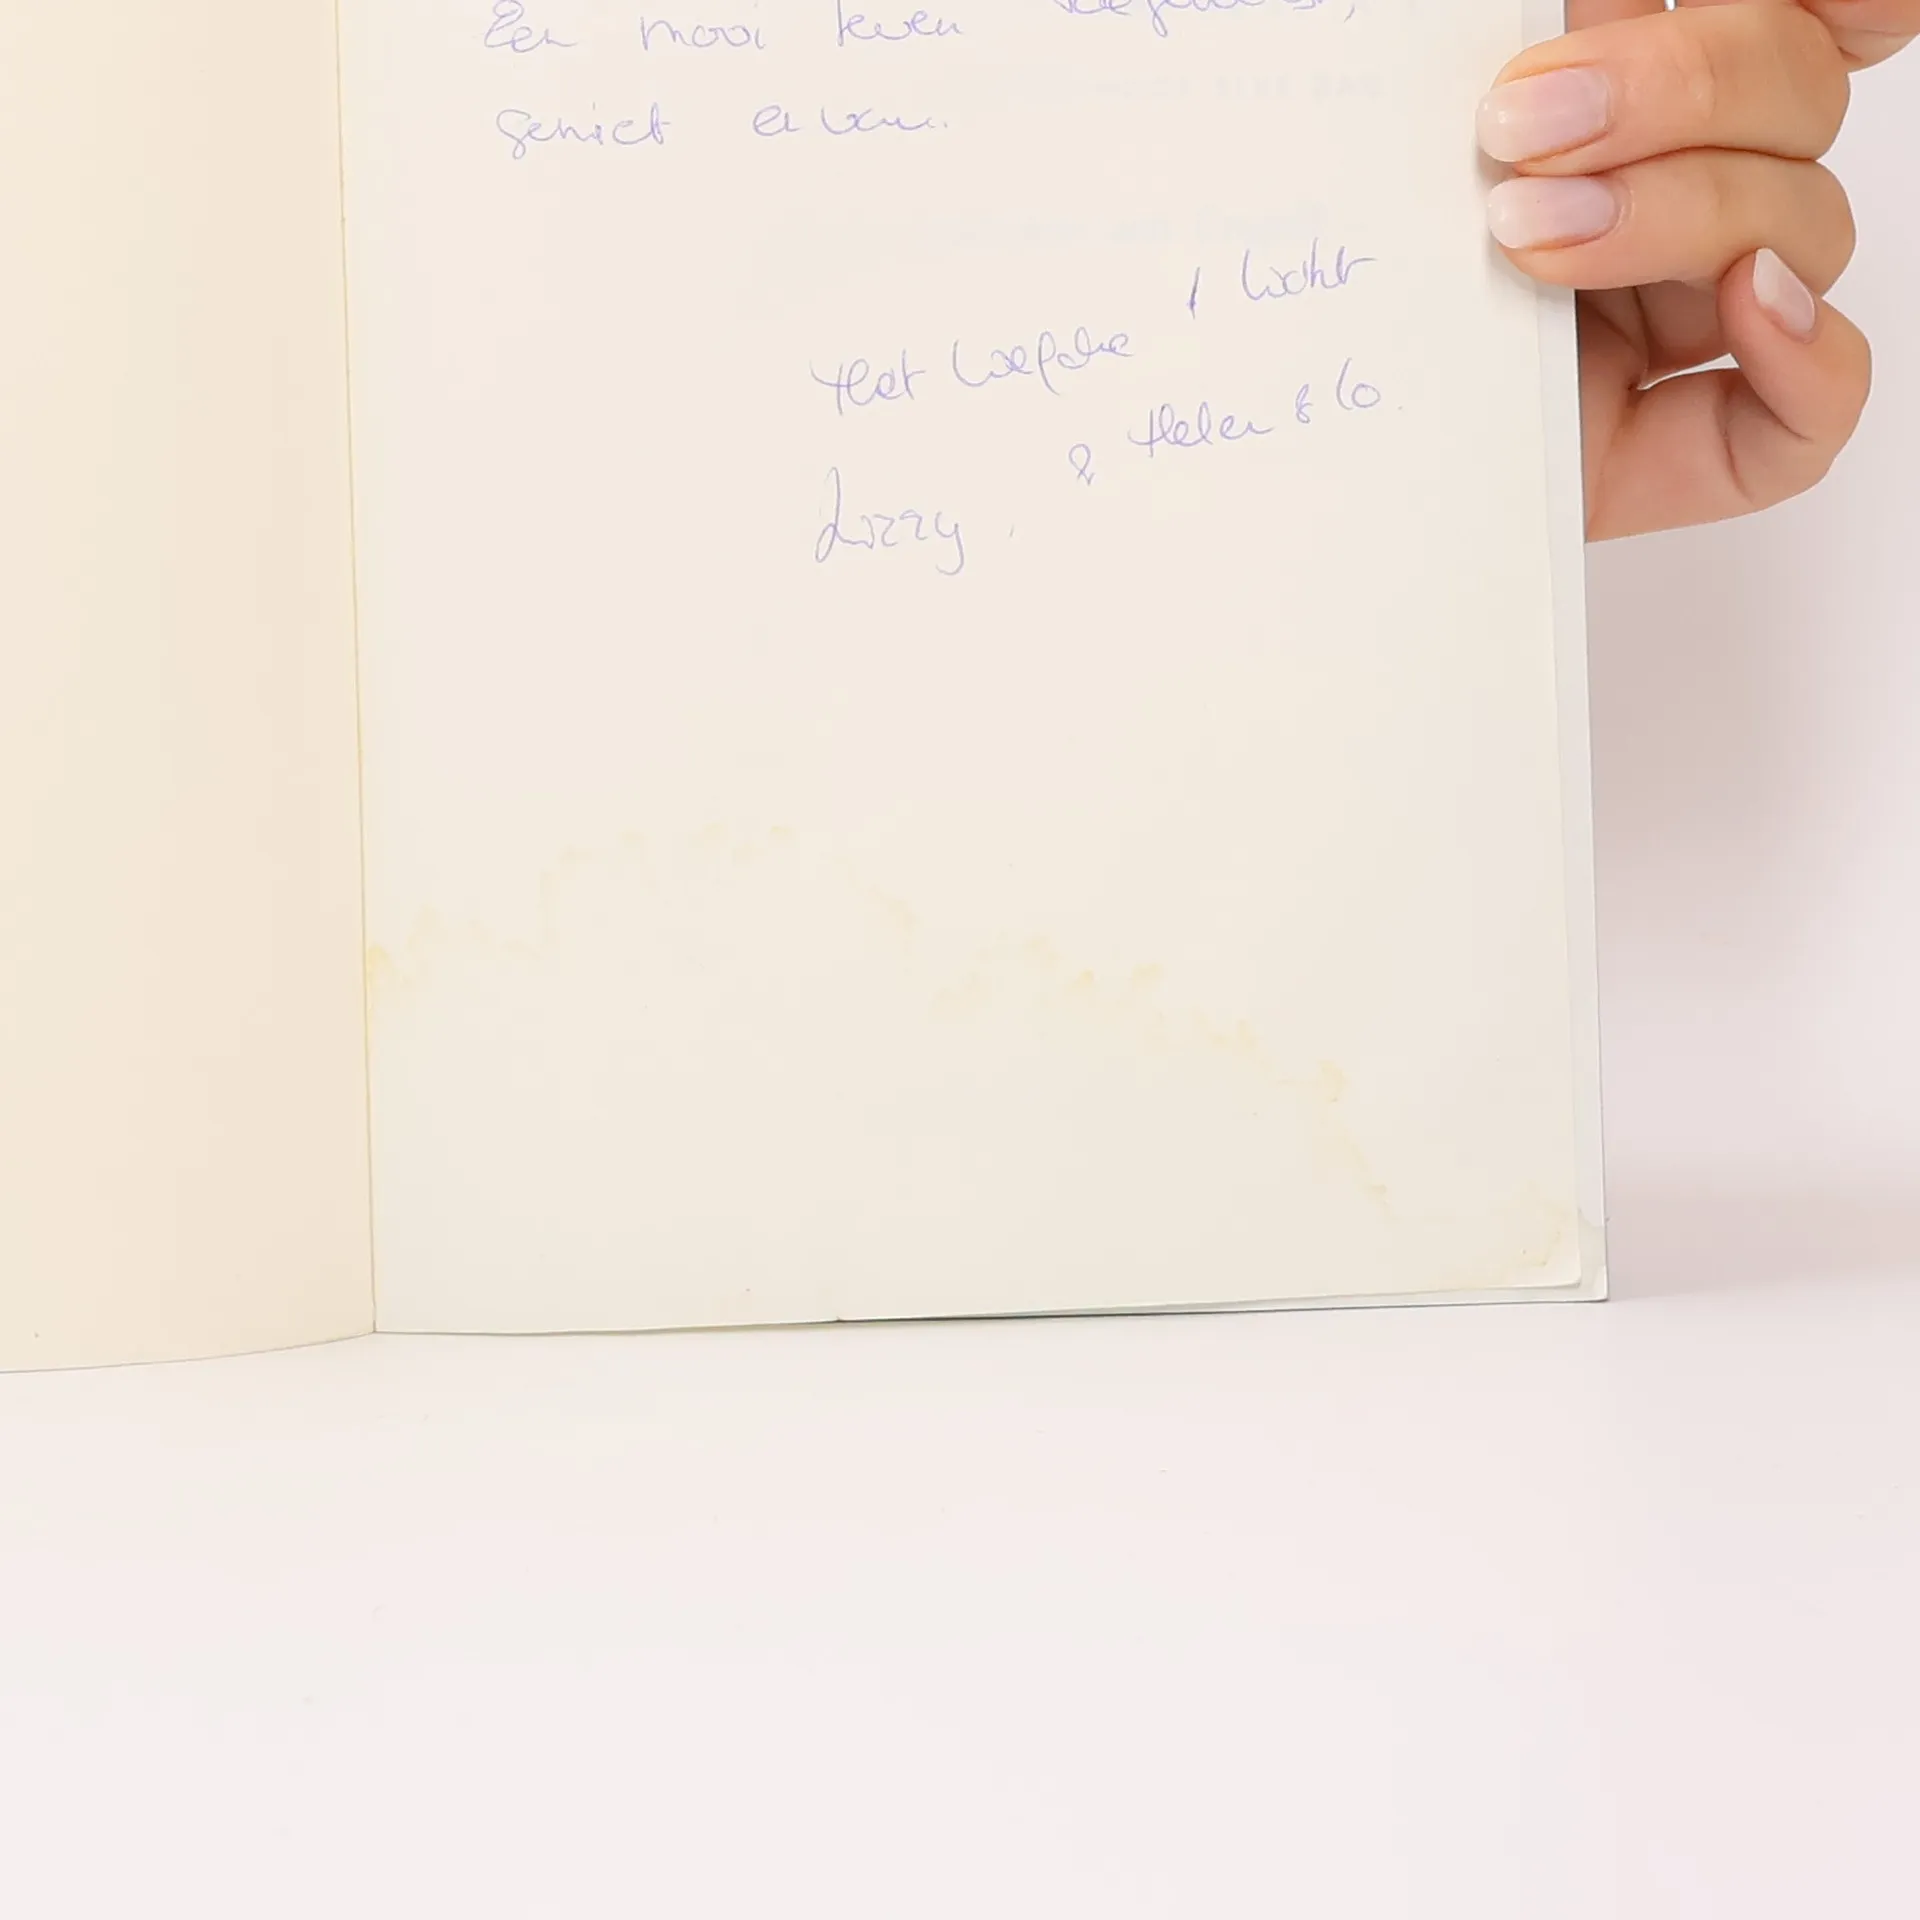 Een mooi leven toegewenst,
geniet ervan.
Met liefde & licht
Lizzy. & Helen & Co.